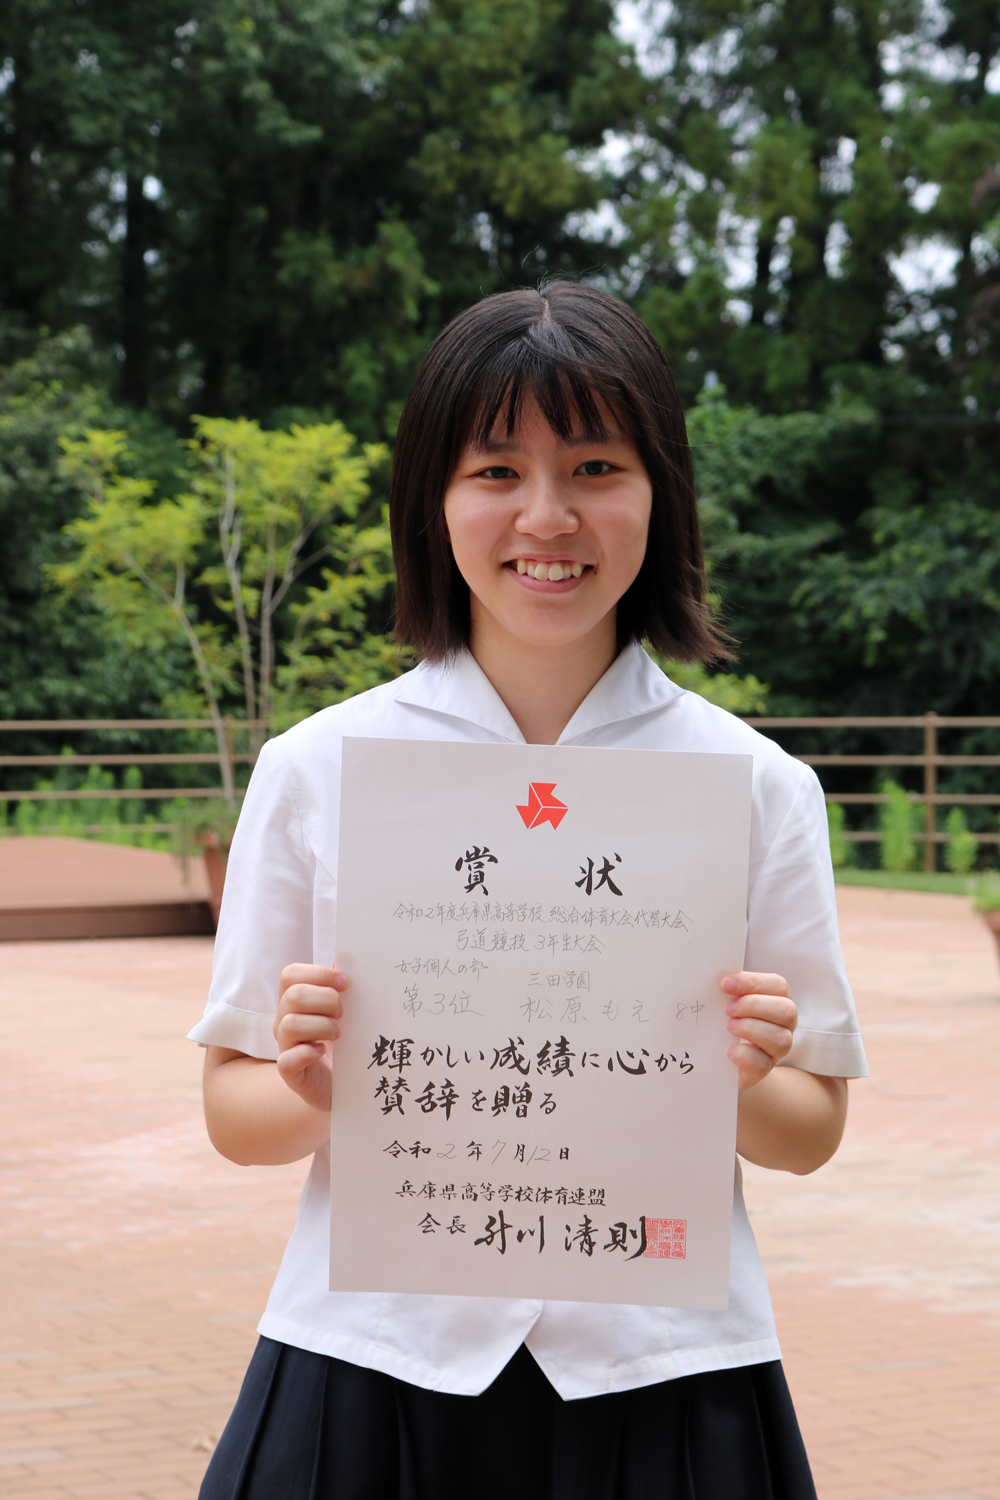 賞状
令和2年度兵庫県高等学校総合体育大会代替大会
弓道競技 3年生大会
女子個人の部
三田学園
第3位 松原 もえ 8中
輝かしい成績に心から
賛辞を贈る
令和2年7月12日
兵庫県高等学校体育連盟
会長 升川 清則